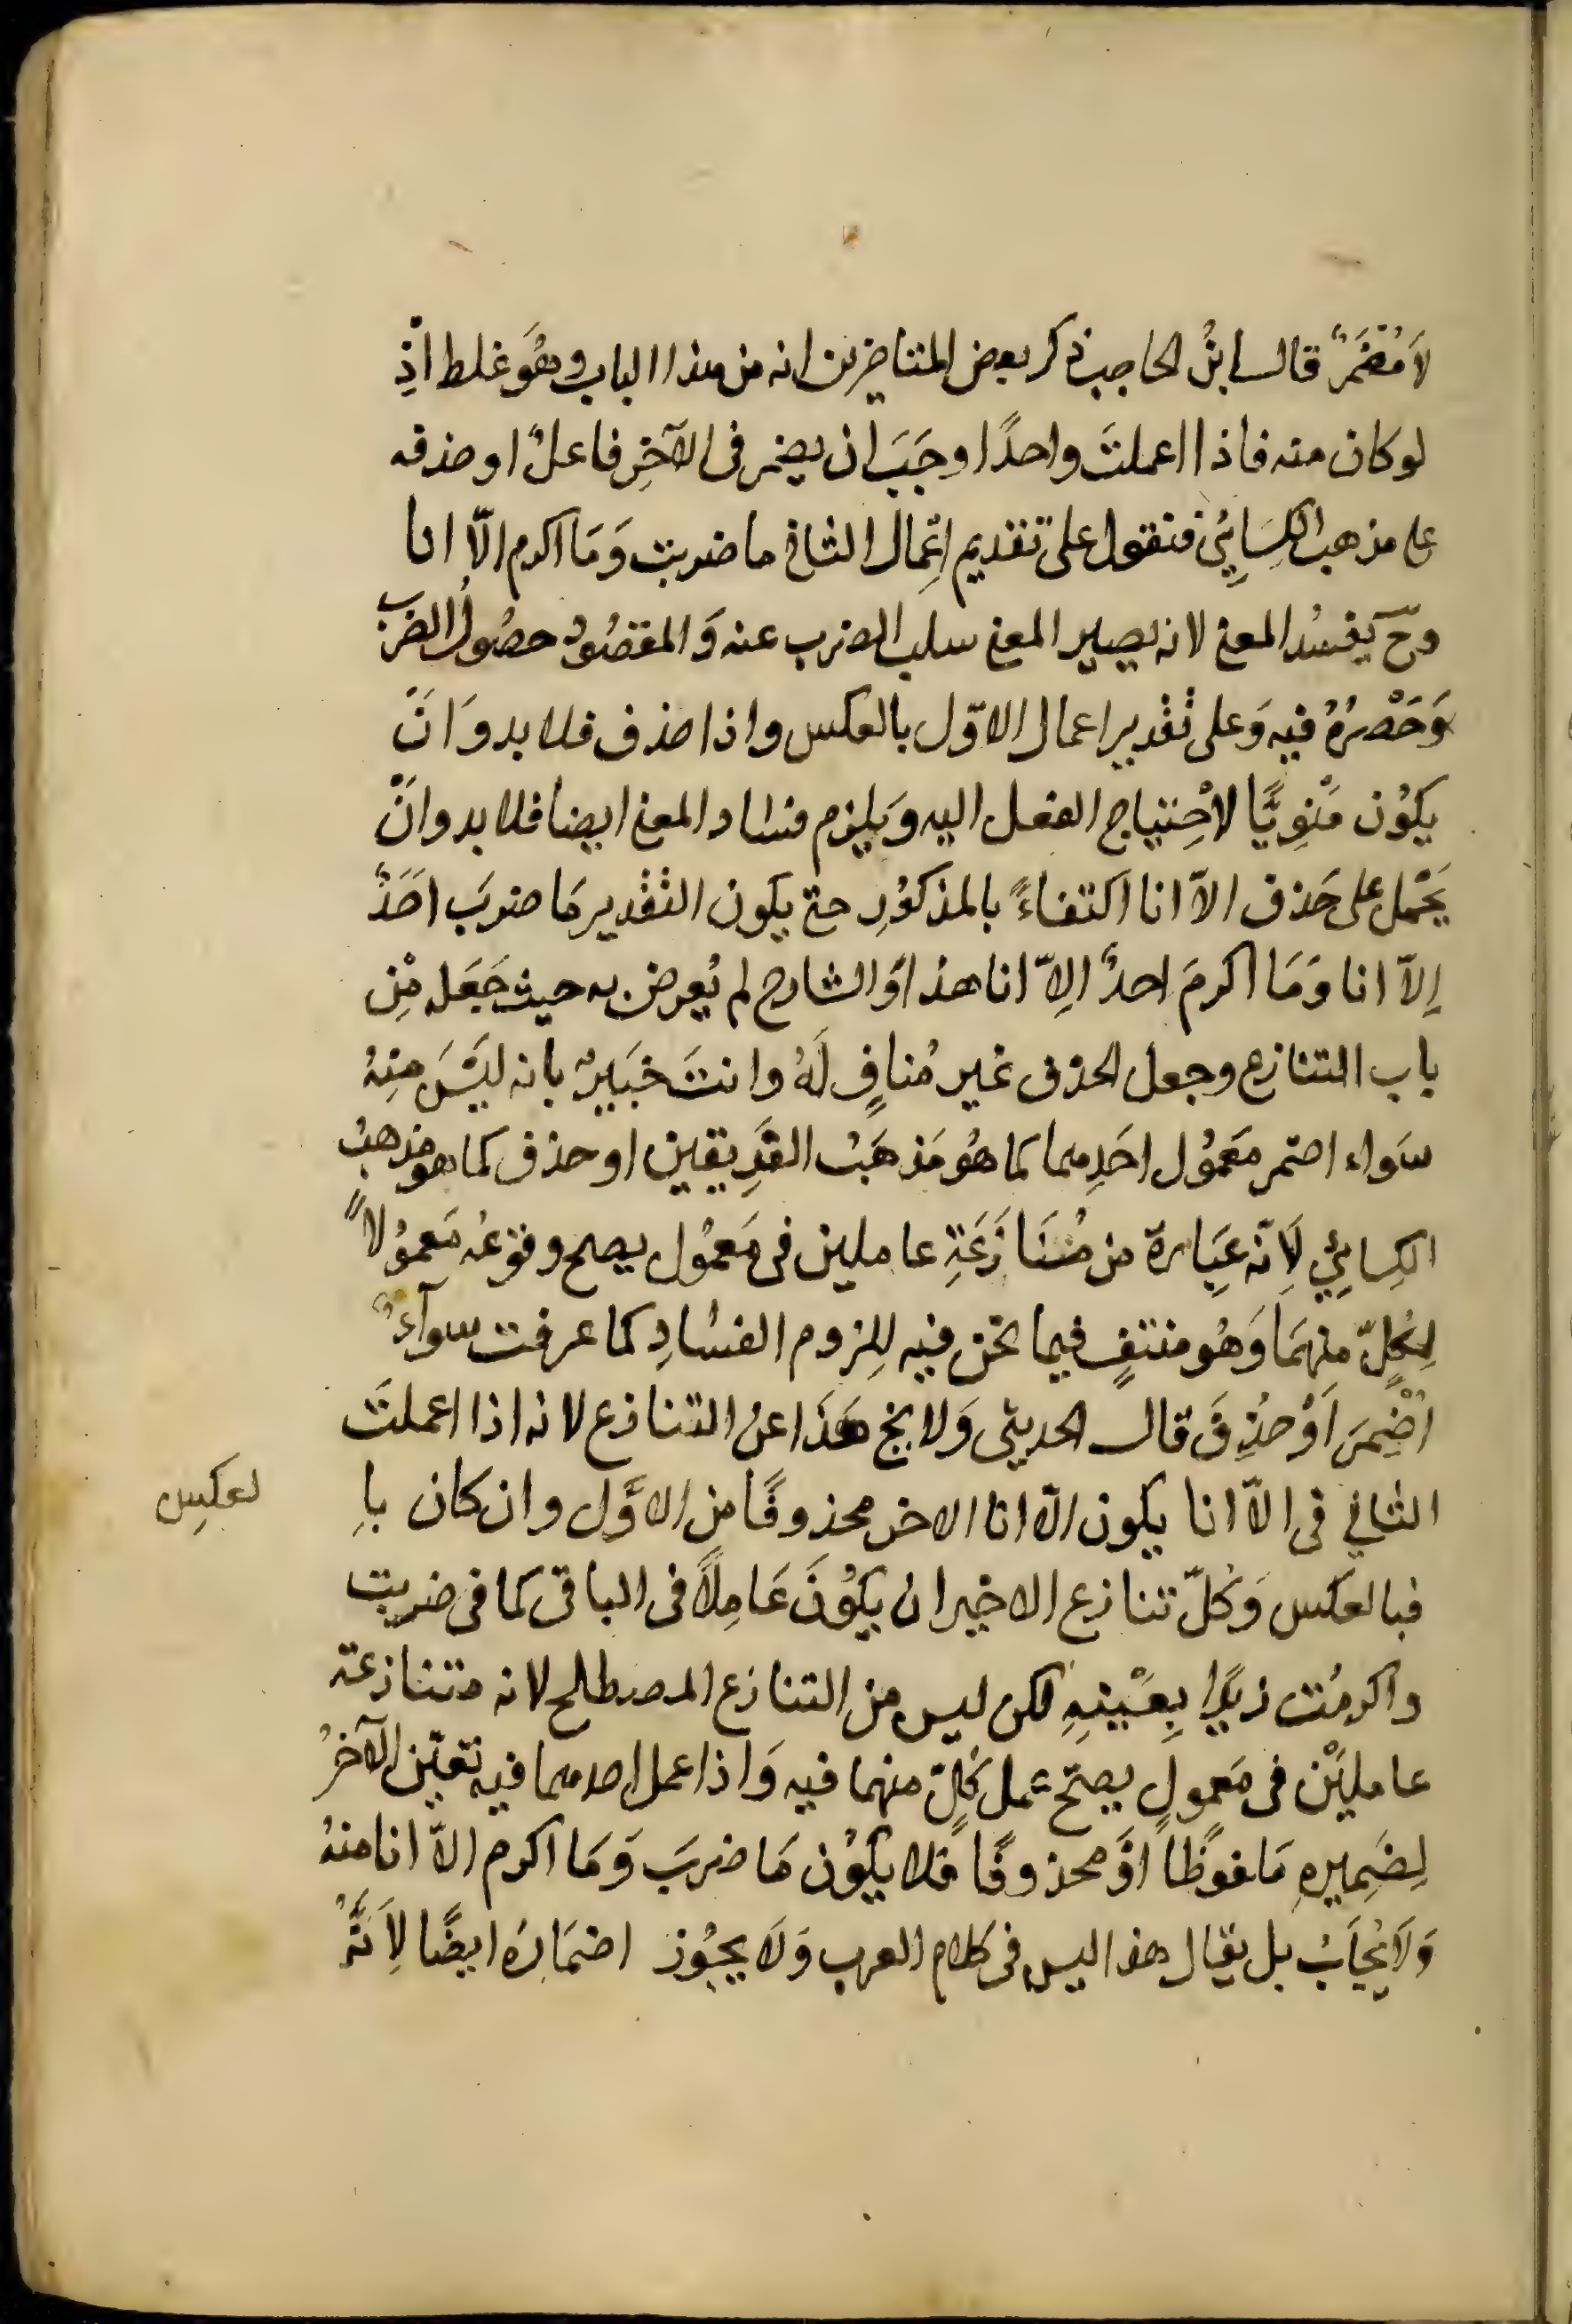 لَا مُضْمَرٌ قال ابنُ الحاجب ذكر بعض المتاخرين انه من هذا الباب وهُوَ غلط اذِ
لو كان منه فاذا اعملتَ واحدًا وجَبَ ان يضمر فى الآخِرِ فاعلٌ او حذفه
على مذهب الكِسَائِيّ فتقول على تقديم اِعْمال الثانى ما ضربت وَمَا اكرم الّا انا
وحَ يَفسُد المعنى لانه يصير المعنى سلب الضرب عنه وَالمقصُود حصُولُ الضرَب
وَحَصْرُهُ فيه وَعلى تقدير اعمال الاوّل بالعكس واذا حذف فلا بد وَانَّ
يكوُن مَنْوِيًّا لاحْتياج الفعل اليه وَيلزم فساد المعنى ايضا فلا بد وانْ
يَحْمل على حَذف الاّ انا اكتفاءً بالمذكوُرِ حتى يكون التقدير مَا ضربَ احَدٌ
اِلاّ انا وَمَا اكرمَ احدٌ الِاّ انا هذا وَالشارح لم يُعرض به حيث جَعَله مِن
باب التنازع وجعل الحذف غير مُنافٍ لَهُ وانتَ خَبيرٌ بانه ليَسَ مِنهُ
سَواء اضمر مَعمُول احَدِهما كما هُو مَذهَبُ الفَرِيقين او حذف كما هو مذهبُ
الكِسائِيّ لِاَنّه عِبَارة من مُنَازَعَةِ عاملين فى مَعمُول يصلح وقوعُه مَعموُلاً
لِكُلّ مِنهمَا وَهُو منتفٍ فيما نحن فيه لِلزوم الفسُادِ كما عرفت سوآءٌ
اُضْمِرَ اَوْ حُذِفَ قال الحديثى وَلا يخ هَذَا عن التنازع لانه اذا اعملتَ
الثانى فى الاّ انا يكون الّا انا الاخر محذوفًا من الاوَّل وان كان باِ
لعكسِ
فبالعكس وَكُلّ تنازع الاخير ان يكوُنَ عَامِلاً فى الباقى كما فى ضربت
واكرمُت زيدًا بِعَيْنِهِ لكن ليس من التنازع المصطلح لانه متنازعة
عاملَيْن فى مَعمولٍ يصحّ عمل كُلّ منهما فيه وَاذا عمل احدهما فيه تعيّن الآخرُ
لِضَمِيرِهِ مَلفوظًا اوَ محذوفًا فلا يكوُن مَا ضربَ وَمَا اكرم الاّ انا منهُ
وَلَا يُجَابُ بل يقال هذا ليس فى كلام العرب وَلَا يجوُز اضمَارُه ايضًا لِاَنّهُ